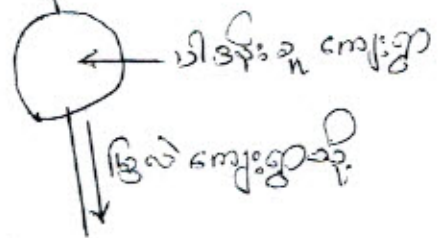 ပါဒန်းသူ ကျေးရွာ
မြွလဲ ကျေးရွာသို့